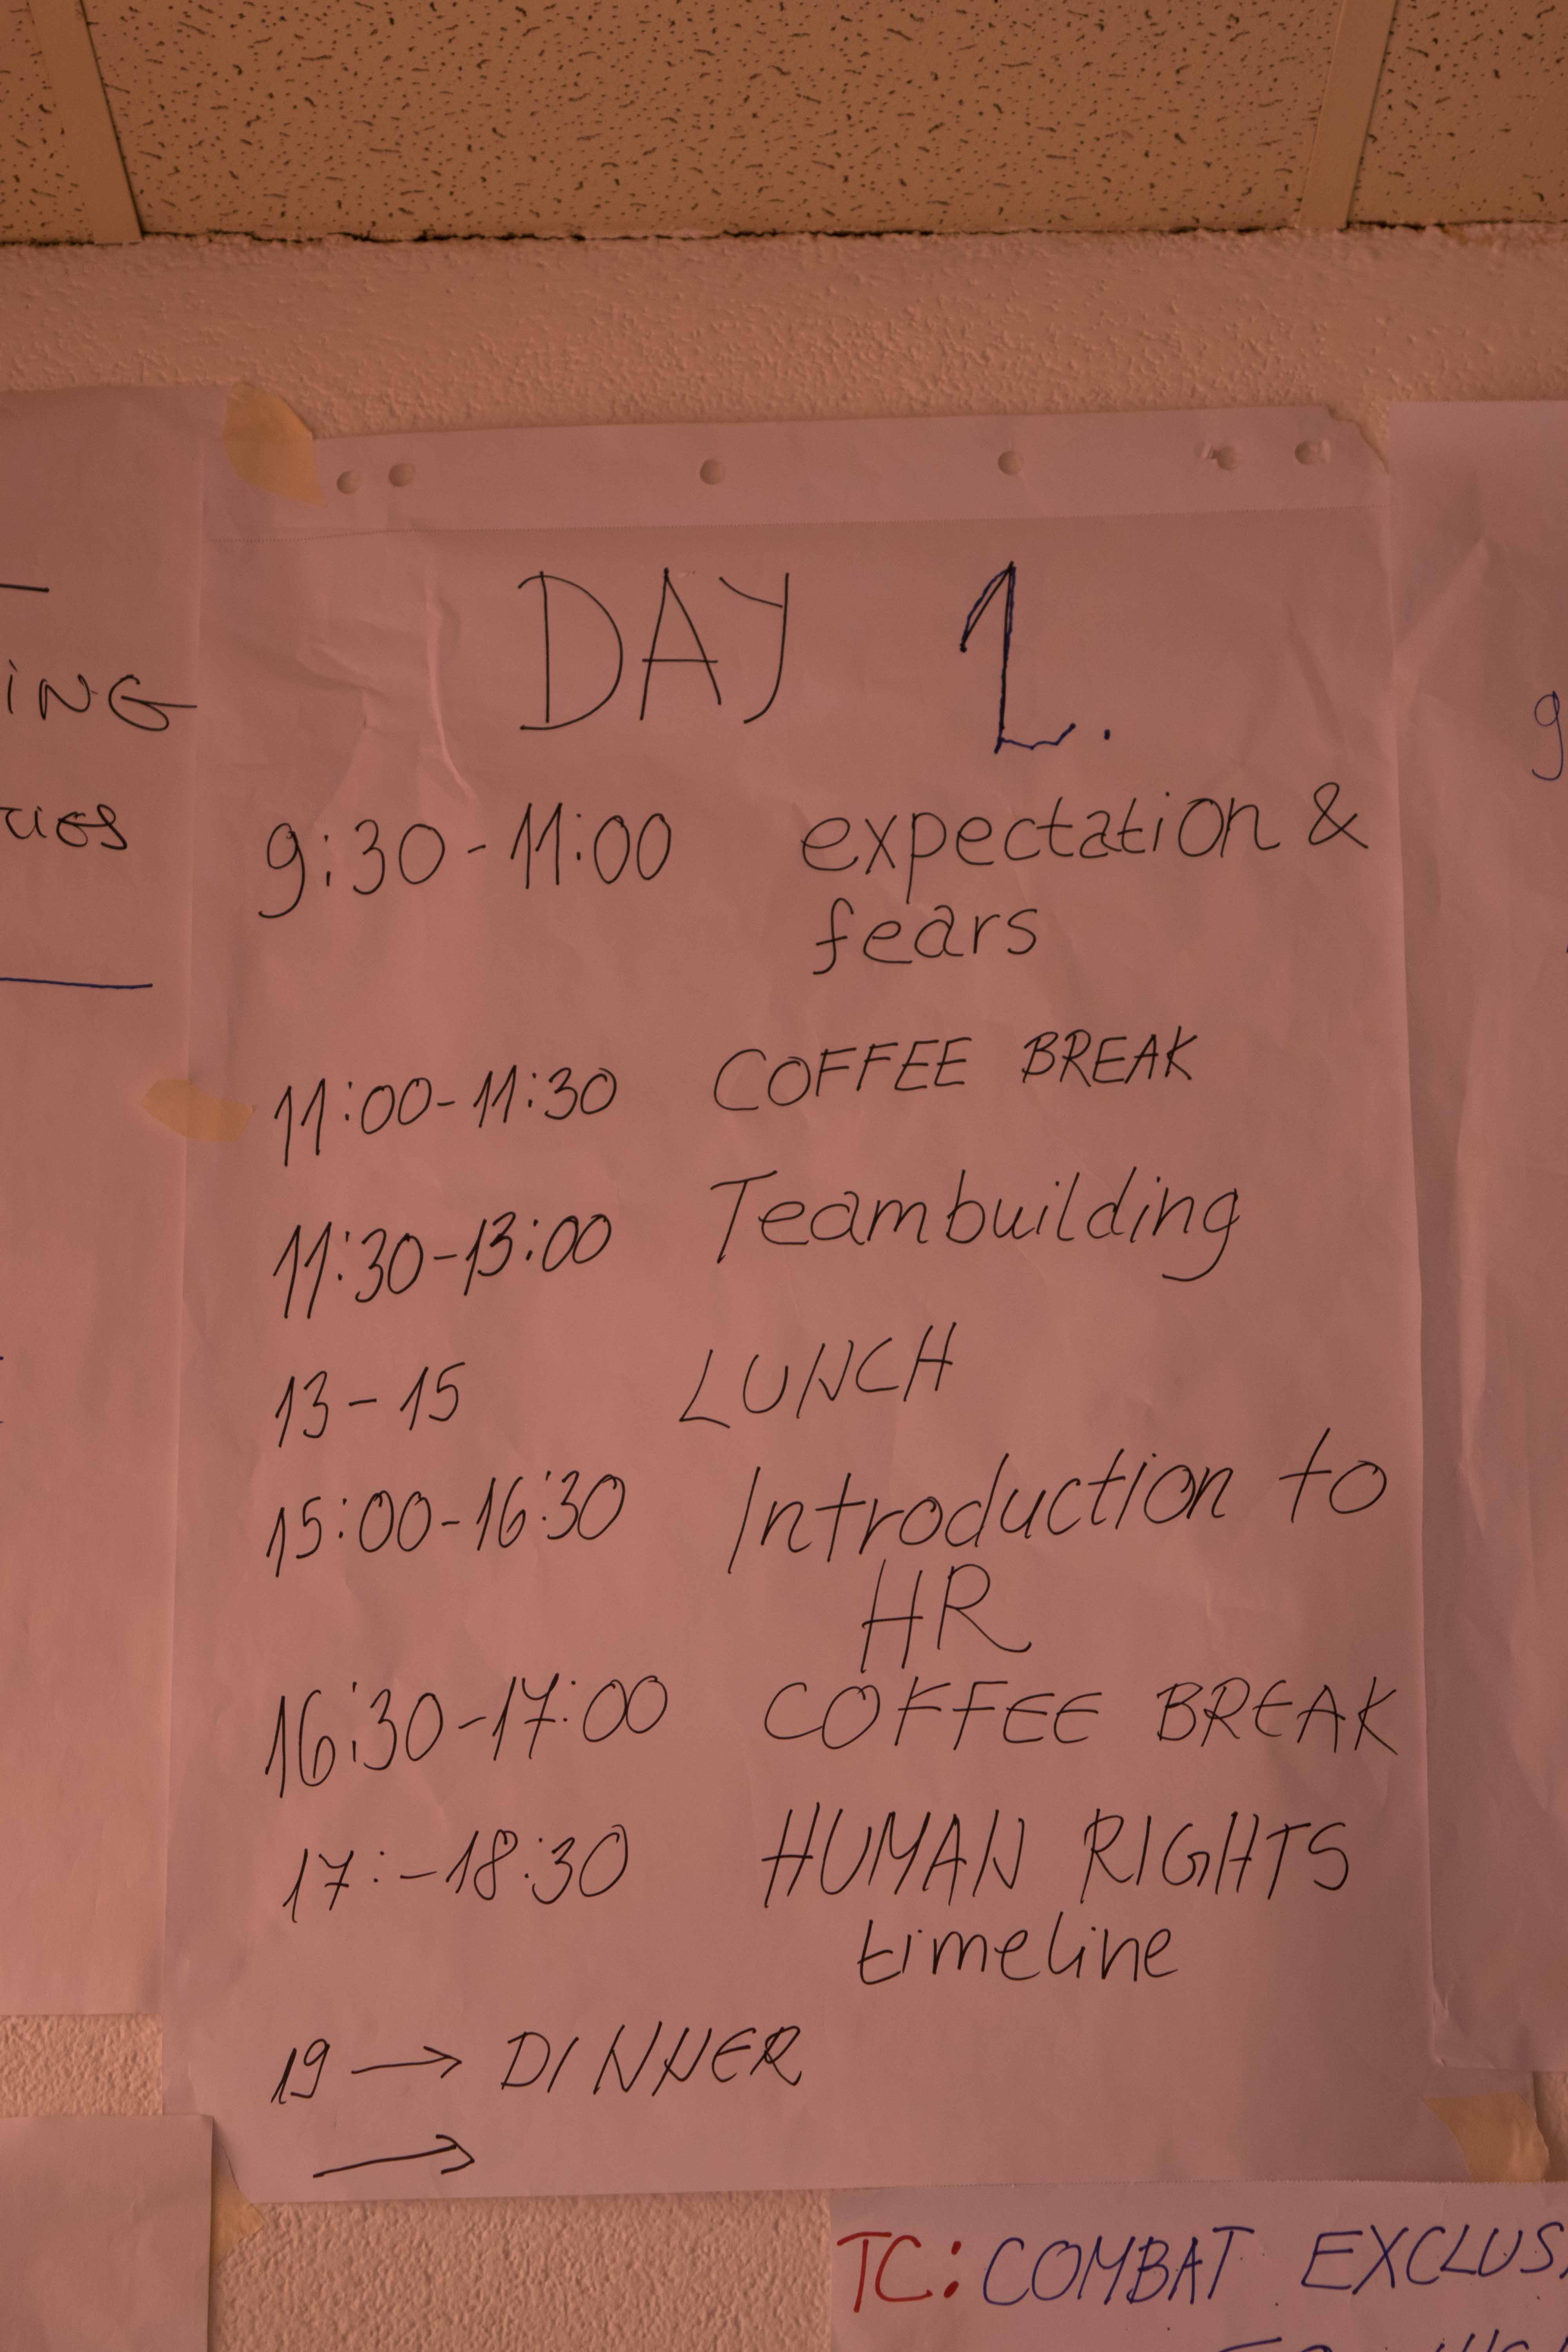 DAY 1.
9:30-11:00 expectation &
fears
11:00-11:30 COFFEE BREAK
11:30-13:00 Teambuilding
13-15 LUNCH
15:00-16:30 Introduction to
HR
16:30-17:00 COFFEE BREAK
17:-18:30 HUMAN RIGHTS
timeline
19 → DINNER
→
ING
TC: COMBAT EXCLUS